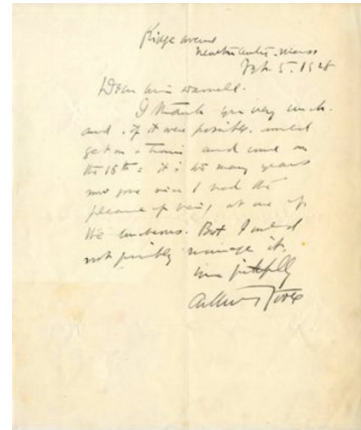 Ridge Avenue
Newton Centre. Mass
Feb. 5. 192
Dear Miss
I thank you very much.
and, if it was possible, would
get on a train and come on
the 18th: it is many years
now gone since I had the
pleasure of being at one of
the luncheons. But I could
not possibly manage it.
Yours faithfully
Arthur Foote